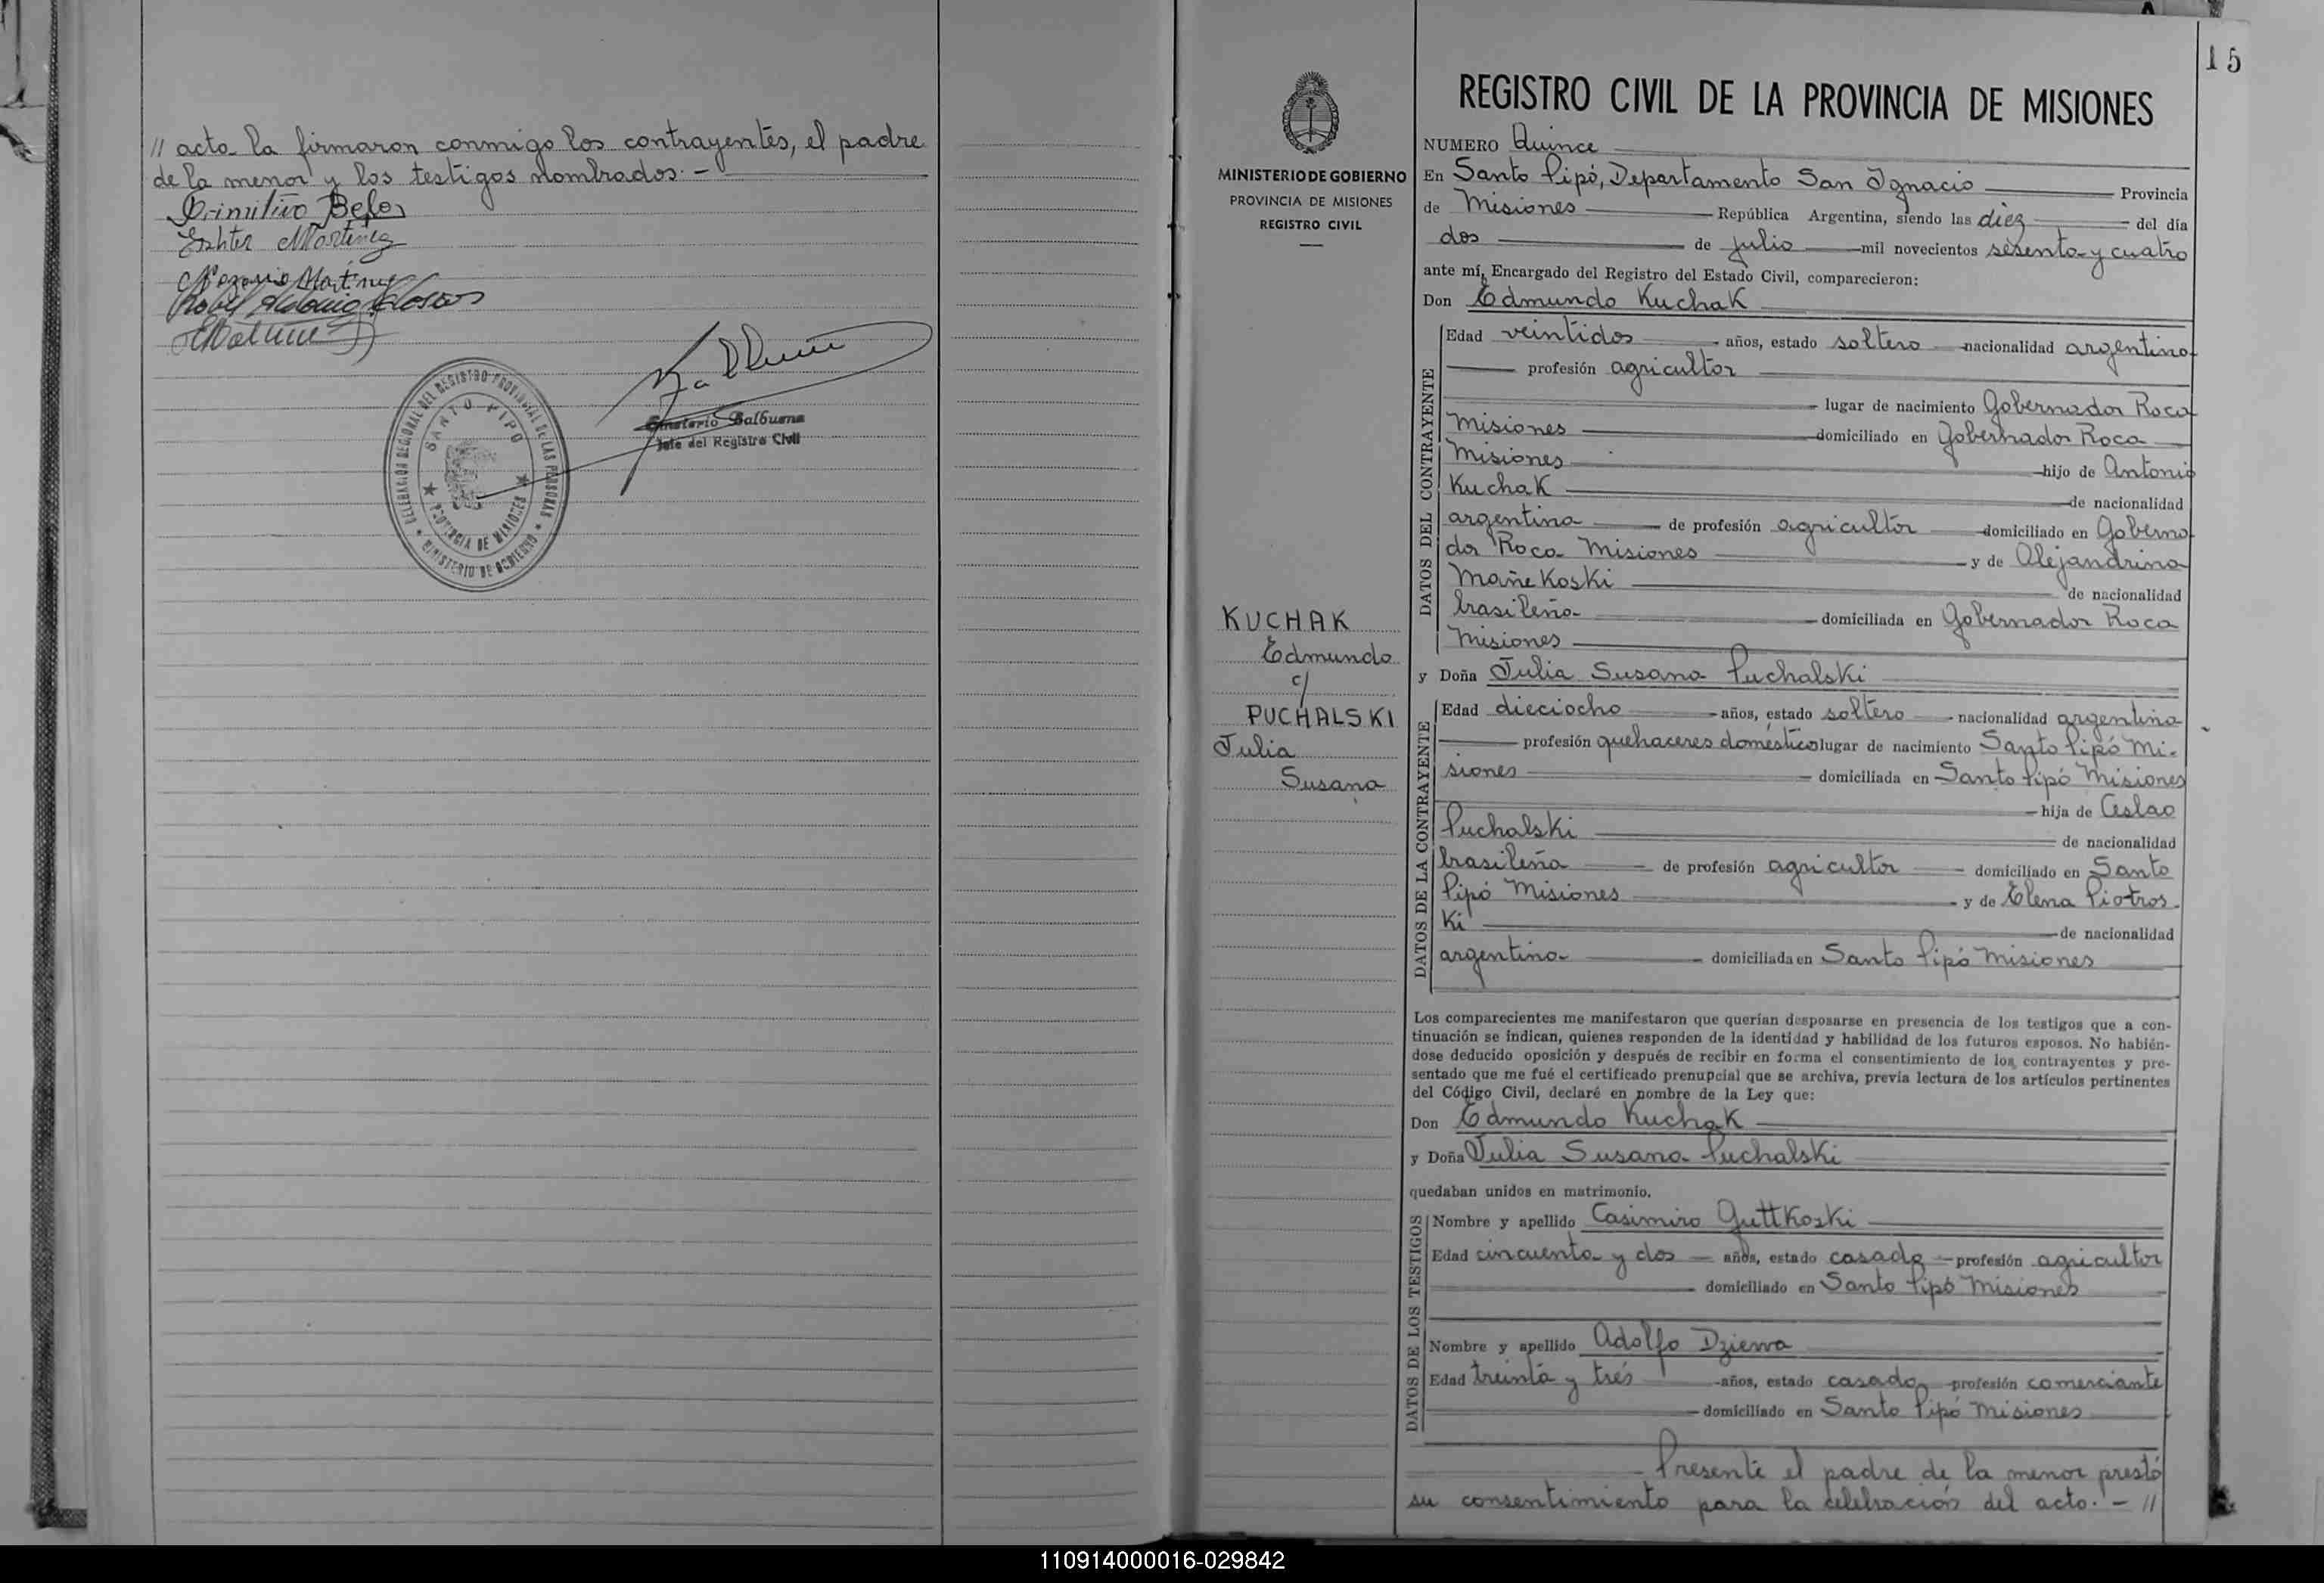 // acto la firmaron conmigo los contrayentes, el padre
de la menor y los testigos nombrados. -
Primitivo
Martinez
Martinez
Antonio
Balbuena
Jefe del Registro Civil
DELEGACION REGIONAL DEL REGISTRO PROVINCIAL DE LAS PERSONAS
SANTO PIPO
PROVINCIA DE MISIONES
MINISTERIO DE GOBIERNO
15
MINISTERIO DE GOBIERNO
PROVINCIA DE MISIONES
REGISTRO CIVIL
KUCHAK
Edmundo
c/
PUCHALSKI
Julia
Susana
REGISTRO CIVIL DE LA PROVINCIA DE MISIONES
NUMERO Quince
En Santo Pipó, Departamento San Ignacio Provincia
de Misiones República Argentina, siendo las diez del día
dos de julio mil novecientos sesenta y cuatro
ante mí, Encargado del Registro del Estado Civil, comparecieron:
Don Edmundo Kuchak
DATOS DEL CONTRAYENTE
Edad veintidos años, estado soltero nacionalidad argentina
profesión agricultor
lugar de nacimiento Gobernador Roca
Misiones domiciliado en Gobernador Roca
Misiones hijo de Antonio
Kuchak de nacionalidad
argentina de profesión agricultor domiciliado en Goberna
dor Roca Misiones y de Alejandrina
Mañekoski de nacionalidad
brasileña domiciliada en Gobernador Roca
Misiones
y Doña Julia Susana Puchalski
DATOS DE LA CONTRAYENTE
Edad dieciocho años, estado soltera nacionalidad argentina
profesión quehaceres domésticos lugar de nacimiento Santo Pipó Mi-
siones domiciliada en Santo Pipó Misiones
hija de Ceslao
Puchalski de nacionalidad
brasileña de profesión agricultor domiciliado en Santo
Pipó Misiones y de Elena Piotros-
ki de nacionalidad
argentina domiciliada en Santo Pipó Misiones
Los comparecientes me manifestaron que querían desposarse en presencia de los testigos que a con-
tinuación se indican, quienes responden de la identidad y habilidad de los futuros esposos. No habién-
dose deducido oposición y después de recibir en forma el consentimiento de los contrayentes y pre-
sentado que me fué el certificado prenupcial que se archiva, previa lectura de los artículos pertinentes
del Código Civil, declaré en nombre de la Ley que:
Don Edmundo Kuchak
y Doña Julia Susana Puchalski
quedaban unidos en matrimonio.
DATOS DE LOS TESTIGOS
Nombre y apellido Casimiro Guttkoski
Edad cincuenta y dos años, estado casado profesión agricultor
domiciliado en Santo Pipó Misiones
Nombre y apellido Adolfo Dziewa
Edad treinta y tres años, estado casado profesión comerciante
domiciliado en Santo Pipó Misiones
Presente el padre de la menor prestó
su consentimiento para la celebración del acto. - //
110914000016-029842